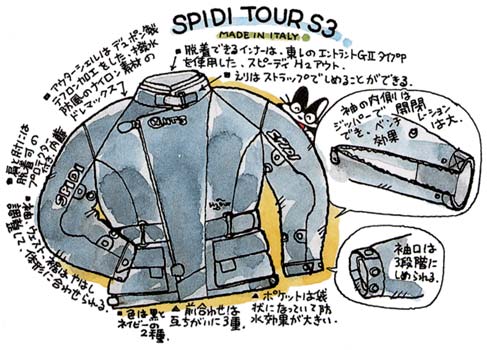 SPIDI TOUR S3
MADE IN ITALY
■アウターシェルはデュポン製
テフロン加工をした、撥水
防風のナイロン素材の
ドトマックス
■脱着できるインナーは、東レのエントラントGⅡタイプP
を使用した、スピーディH₂アウト。
■えりはストラップでしめることができる。
袖の内側は
ジッパーで開閉
でき、ベンチレーション
効果は大
SPIDI
SPIDI
■肩とひじには
脱着可の
プロテクター
付き。肉厚
ウエスト、裾はやはり
体形に合わせられる。
■色は黒と
ネイビーの
2種。
▲前合わせは
互ちがいに3種。
▲ポケットは袋
状になっていて防
水効果が大きい。
袖口は
3段階に
しめられる。